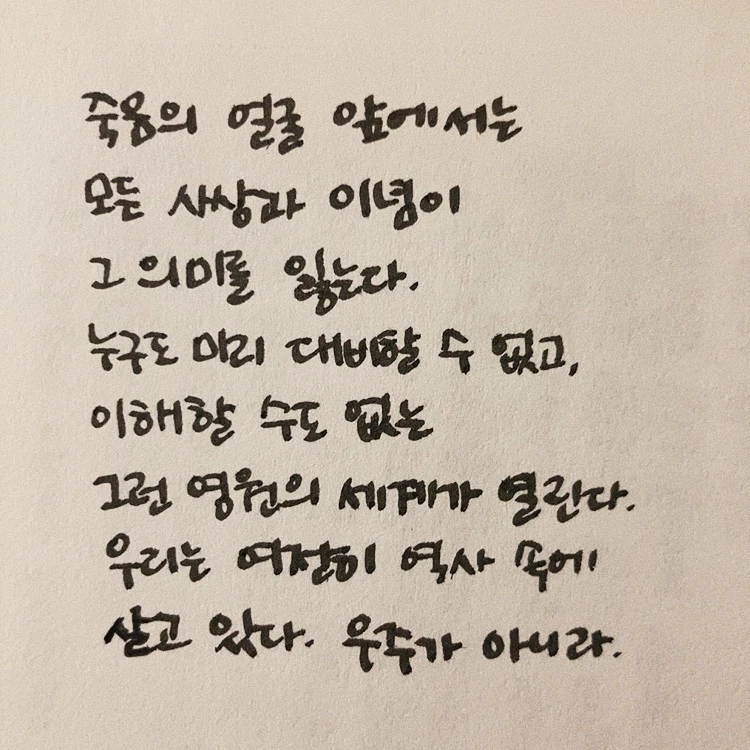 죽음의 얼굴 앞에서는
모든 사상과 이념이
그 의미를 잃는다.
누구도 미리 대비할 수 없고,
이해할 수도 없는
그런 영원의 세계가 열린다.
우리는 여전히 역사 속에
살고 있다. 우주가 아니라.